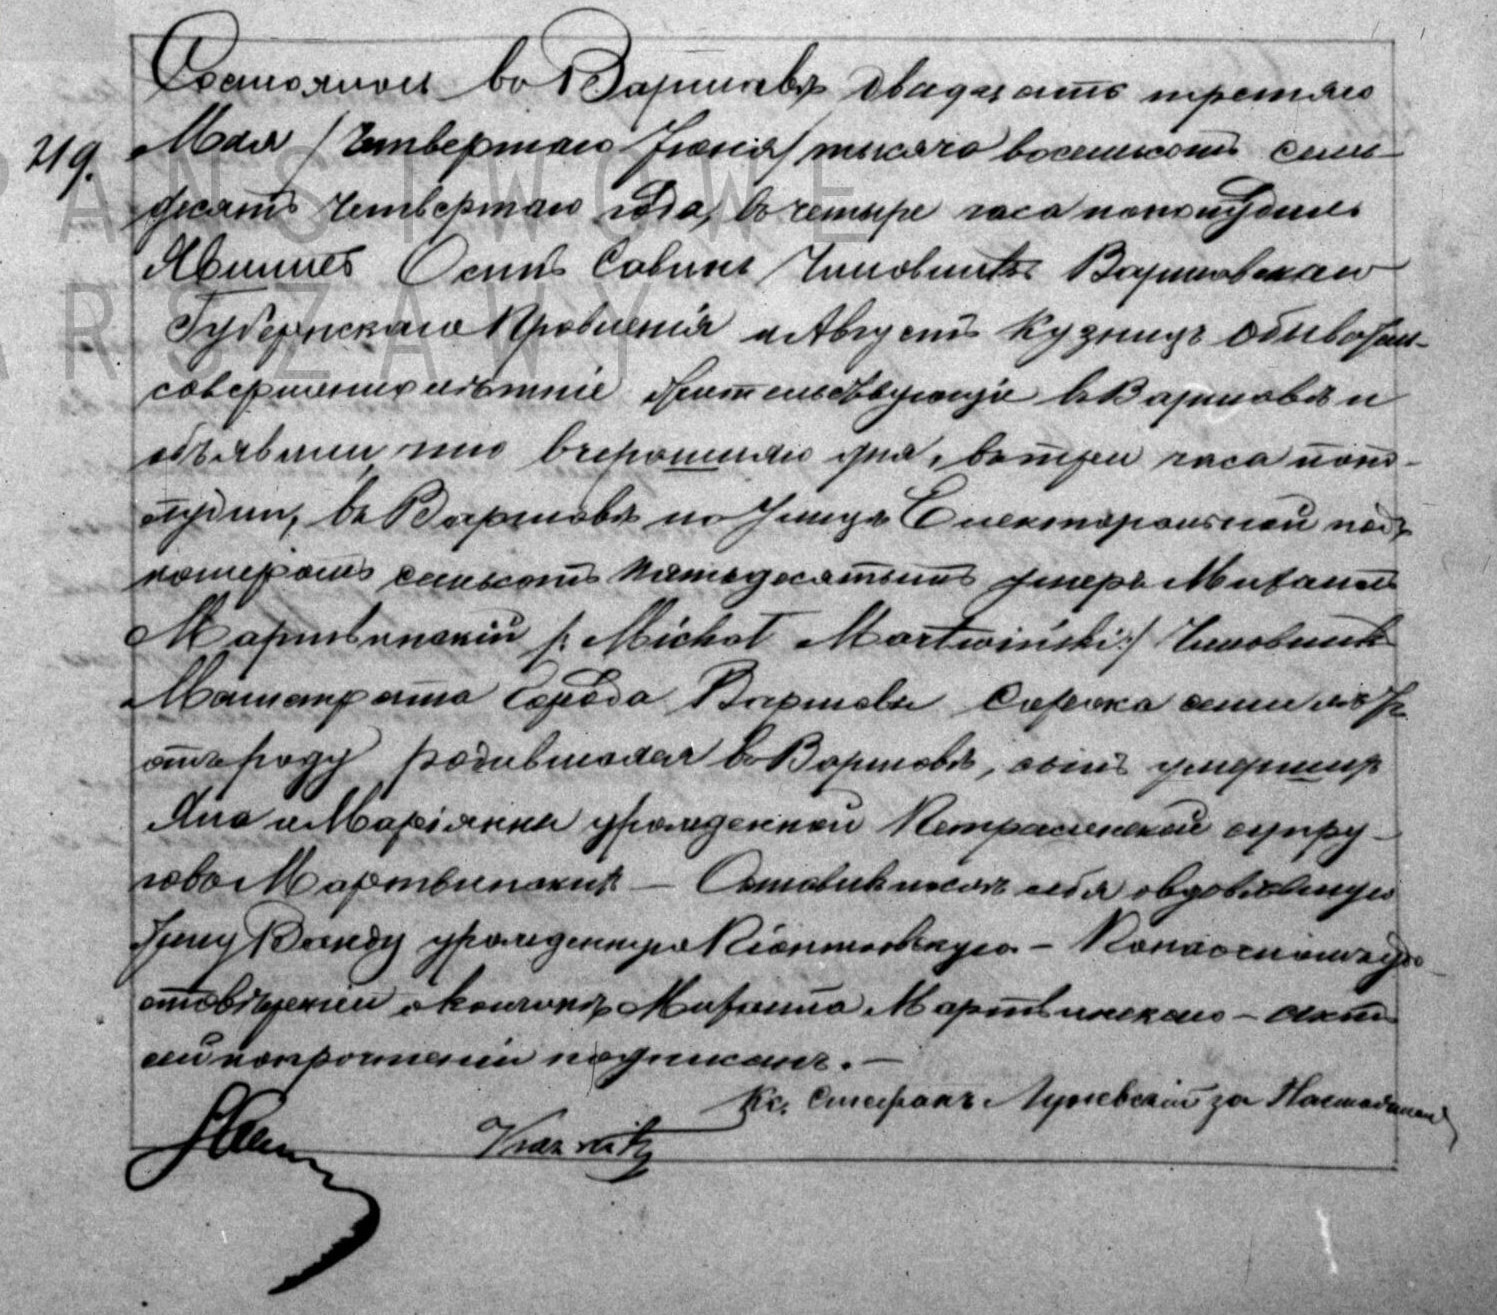 219.
Состоялось въ Варшавѣ двадцать третьяго
Мая / Четвертаго Іюня / тысяча восемьсотъ семь-
десятъ Четвертаго года, въ четыре часа пополудни.
Явились Осипъ Савинъ Чиновникъ Варшавскаго
Губернскаго Правленія и Августъ Кузницъ Обыватель
совершеннолѣтніе жительствующіе въ Варшавѣ и
объявили что вчерашняго дня, въ три часа попо-
лудни, въ Варшавѣ по Улицѣ Електоральной подъ
номеромъ семьсотъ пятьдесятымъ умеръ Михаилъ
Мартвинскій /: Michał Martwiński :/ Чиновникъ
Магистрата Города Варшавы Сорока семи лѣтъ
отъ роду родившійся въ Варшавѣ, сынъ умершихъ
Яна и Маріянны урожденной супру-
говъ Мартвинскихъ — Оставивъ послѣ себя овдовѣвшую
Жену Ванду урожденную — По настоящемъ удо-
стовѣреніи о кончинѣ Михаила Мартвинскаго — актъ
сей по прочтеніи подписанъ. —
Кс. Стефанъ за Настоятеля